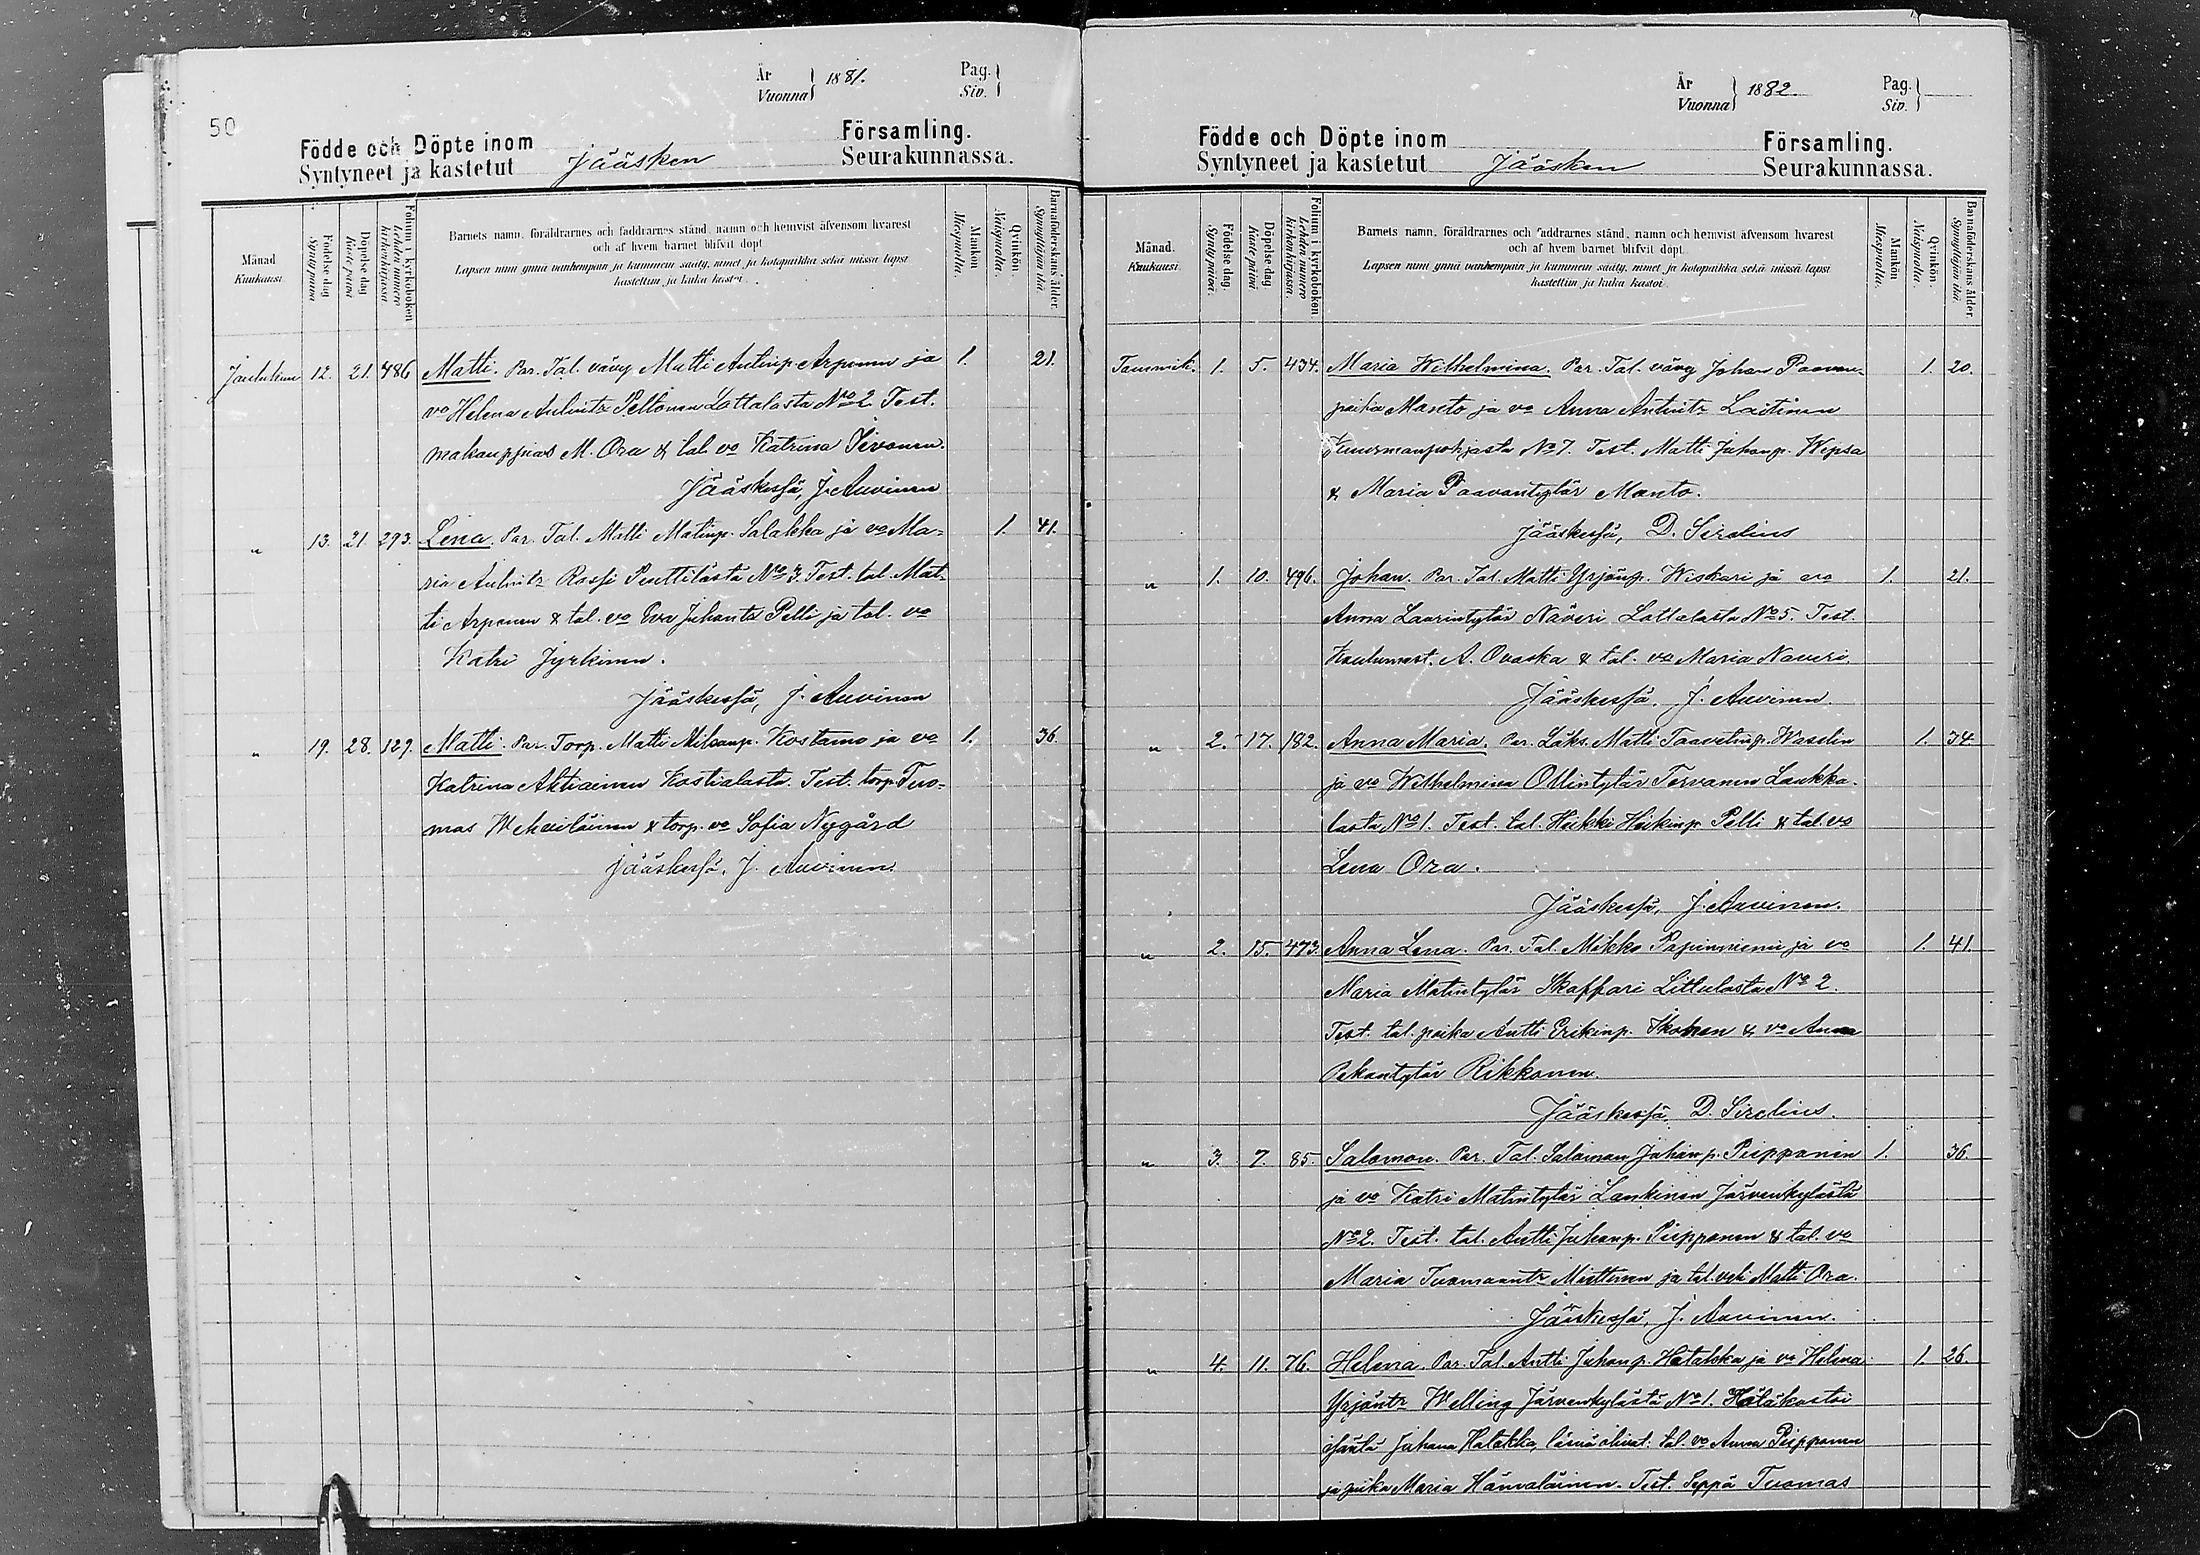 50
År
Vuonna } 1881.
Pag.
Siv. }
Födde och Döpte inom
Syntyneet ja kastetut Jääsken
Församling.
Seurakunnassa.
Månad
Kuukausi
Födelse dag
Synty päivä
Döpelse dag
Kaste päivä
Folium i kyrkoboken
Lehden numero
kirkonkirjassa
Barnets namn, föräldrarnes och faddrarnes stånd, namn och hemvist äfvensom hvarest
och af hvem barnet blifvit döpt
Lapsen nimi ynnä vanhempain ja kummein sääty, nimet ja kotopaikka sekä missä lapsi
kastettiin ja kuka kastoi.
Mankön
Miespuolta.
Qvinkön.
Naispuolta.
Barnaföderskans ålder.
Synnyttäjän ikä.
Joulukuu 12. 21. 486 Matti. Par. Tal. vävy Matti Antinp. Arponen ja 1. 21.
vo Helena Antintr Peltonen Lottolasta No 2. Test.
makauppias M. Ora & tal. vo Katrina Sivonen.
Jääskessä, J. Auvinen
" 13. 21. 293. Lena. Par. Tal. Matti Matinp. Salakka ja vo Ma= 1. 41.
ria Antintr Rossi Puttilasta No 3. Test. tal. Mat-
ti Arponen & tal. vo Eva Juhontr Pelli ja tal. vo
Katri Jyrkinen.
Jääskessä, J. Auvinen
" 19. 28. 129. Matti. Par. Torp. Matti Kostamo ja vo 1. 36.
Katrina Ahtiainen Kostialasta. Test. torp. Tuo=
mas Wehviläinen & torp. vo Sofia Nygård
Jääskessä, J. Auvinen.
År
Vuonna } 1882.
Pag.
Siv. }
Födde och Döpte inom
Syntyneet ja kastetut Jääsken
Församling.
Seurakunnassa.
Månad.
Kuukausi.
Födelse dag.
Synty päivä.
Döpelse dag
Kaste päivä
Folium i kyrkoboken
Lehden numero
kirkonkirjassa.
Barnets namn, föräldrarnes och faddrarnes stånd, namn och hemvist äfvensom hvarest
och af hvem barnet blifvit döpt.
Lapsen nimi ynnä vanhempain ja kummein sääty, nimet ja kotopaikka sekä missä lapsi
kastettiin ja kuka kastoi.
Mankön
Miespuolta.
Qvinkön.
Naispuolta.
Barnaföderskans ålder.
Synnyttäjän ikä.
Tammik. 1. 5. 434. Maria Wilhelmina. Par. Tal. vävy Johan Paavon- 1. 20.
poika Manto ja vo Anna Antintr Laitinen
Kuurmanpohjasta No 7. Test. Matti Juhonp. Wepsä
& Maria Paavontytär Manto.
Jääskessä, D. Sirelius
" 1. 10. 496. Johan. Par. Tal. Matti Yrjönp. Wiskari ja vo 1. 21.
Anna Laurintytär Näveri Lottolasta No 5. Test.
Koulumest. A. Ovaska & tal. vo Maria Naveri.
Jääskessä, J. Auvinen.
" 2. 17. 182. Anna Maria. Par. Läks. Matti Taavetinp. Wasslin 1. 34
ja vo Wilhelmina Ollintytär Tervanen Laukka-
lasta No 1. Test. tal. Heikki Heikinp. Pelli & tal. vo
Lena Ora.
Jääskessä, J. Auvinen.
" 2. 15. 473. Anna Lena. Par. Tal. Mikko Papinniemi ja vo 1. 41.
Maria Matintytär Skaffari Littulasta No 2.
Test. tal. poika Antti Erikinp. Ikonen & vo Anna
Pekantytär Rikkonen.
Jääskessä, D. Sirelius.
" 3. 7. 85. Salomon. Par. Tal. Salomon Johanp. Piipponen 1. 36.
ja vo Katri Matintytär Lankinen Järvenkylästä
No 2. Test. tal. Antti Juhonp. Piipponen & tal. vo
Maria Tuomaantr Miettinen ja tal. veli Matti Ora.
Jääskessä, J. Auvinen.
" 4. 11. 76. Helena. Par. Tal. Antti Juhonp. Hatakka ja vo Helena 1. 26.
Yrjöntr Welling Järvenkylästä No 1. Hätäkastoi
isäntä Juhana Hatakka, läsnä olivat: tal. vo Anna Piipponen
ja piika Maria Hämäläinen. Test. Seppä Tuomas